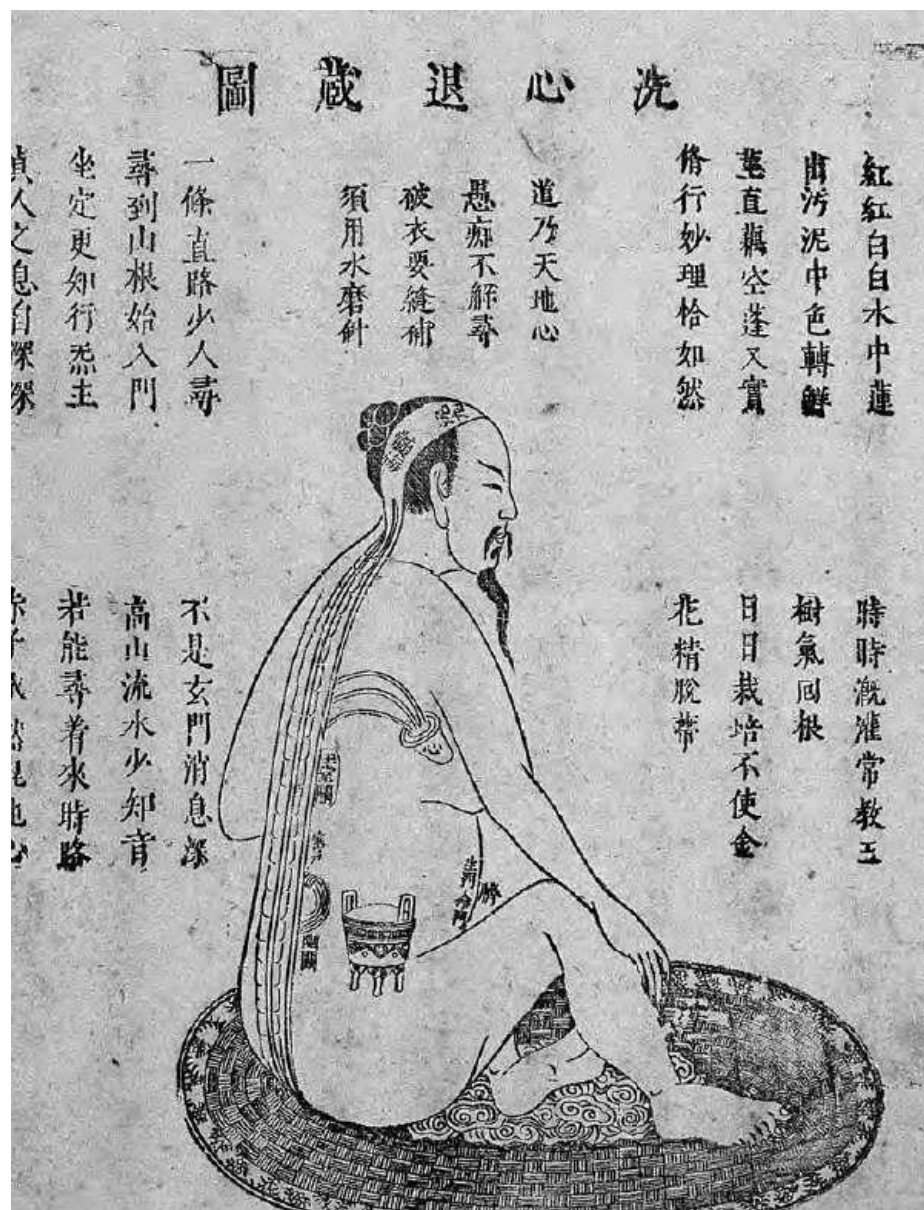 洗心退蔵圖
紅紅白白水中蓮
出污泥中色轉鮮
莖直藕空蓬又實
脩行妙理恰如然
道乃天地心
愚痴不解尋
破衣要縫補
須用水磨針
一條直路少人尋
尋到山根始入門
坐定更知行炁主
真人之息自深深
時時漑灌常教玉
樹氣囘根
日日栽培不使金
花精脫蒂
不是玄門消息深
高山流水少知音
若能尋着來時路
心
臍
生門
命門
幽關